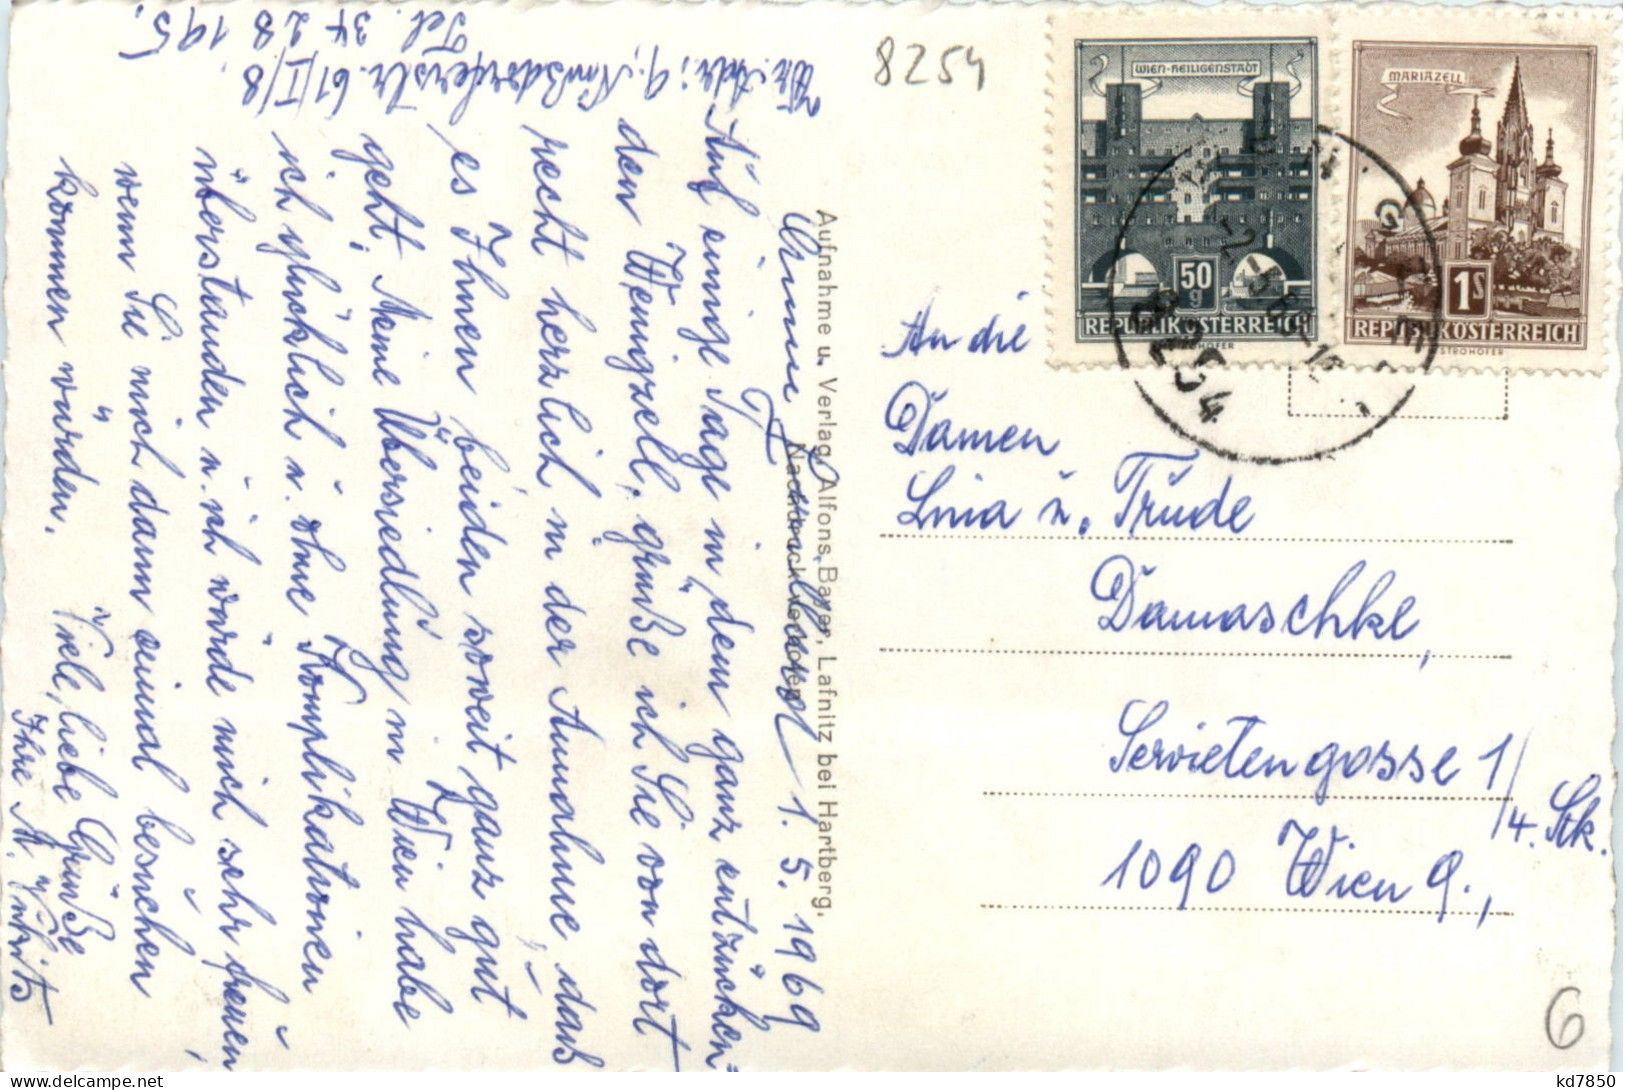 8254
WIEN-HEILIGENSTADT
50
g
REPUBLIK ÖSTERREICH
MARIAZELL
1S
REPUBLIK ÖSTERREICH
STROHOFER
8254
An die
Damen
Linia u. Trude
Damaschke,
Servietengasse 1/4. Stk.
1090 Wien 9.,
6
Aufnahme u. Verlag: Alfons Bayer, Lafnitz bei Hartberg.
Nachdruck verboten
1. 5. 1969
Auf einige Tage in dem ganz entzücken=
den Wenigzell, grüße ich Sie von dort
recht herzlich in der Annahme, dass
es Ihnen beiden soweit ganz gut
geht. Meine Übersiedlung in Wien habe
ich glücklich u. ohne Komplikationen
überstanden u. ich würde mich sehr freuen,
wenn Sie mich dann einmal besuchen
kommen würden. Viele, liebe Grüße
Ihre
Wr. Adr: 9., Nussdorferstr. 61/I/8
Tel. 34 28 195,
kd7850